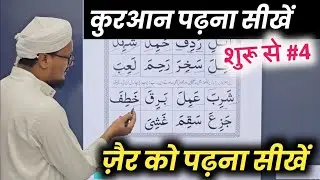 कुरआन पढ़ना सीखें
शुरू से #4
حَمِدَ رَدِفَ
لَعِبَ رَحِمَ سَخِرَ
خَطِفَ بَرِقَ عَمِلَ شَرِبَ
غَشِىَ سَقِمَ جَزِعَ
ज़ैर को पढ़ना सीखें